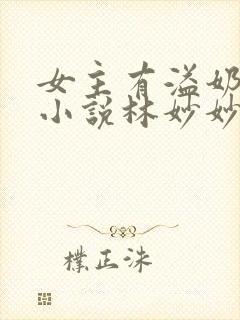 女主有溢奶
小说林妙妙
樸正洙